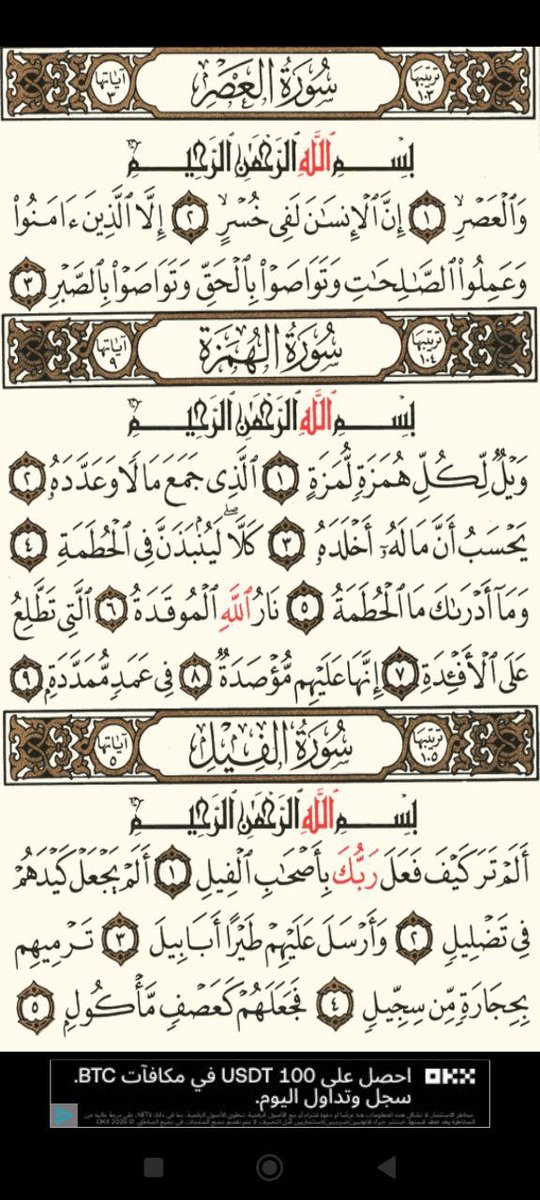 ترتيبها ١٠٣ سُورَةُ العَصْرِ آيَاتها ٣
بِسْمِ ٱللَّهِ ٱلرَّحْمَٰنِ ٱلرَّحِيمِ
وَٱلْعَصْرِ ١ إِنَّ ٱلْإِنسَٰنَ لَفِى خُسْرٍ ٢ إِلَّا ٱلَّذِينَ ءَامَنُوا۟
وَعَمِلُوا۟ ٱلصَّٰلِحَٰتِ وَتَوَاصَوْا۟ بِٱلْحَقِّ وَتَوَاصَوْا۟ بِٱلصَّبْرِ ٣
ترتيبها ١٠٤ سُورَةُ الهُمَزَةِ آيَاتها ٩
بِسْمِ ٱللَّهِ ٱلرَّحْمَٰنِ ٱلرَّحِيمِ
وَيْلٌ لِّكُلِّ هُمَزَةٍ لُّمَزَةٍ ١ ٱلَّذِى جَمَعَ مَالًا وَعَدَّدَهُۥ ٢
يَحْسَبُ أَنَّ مَالَهُۥٓ أَخْلَدَهُۥ ٣ كَلَّا ۖ لَيُنۢبَذَنَّ فِى ٱلْحُطَمَةِ ٤
وَمَآ أَدْرَىٰكَ مَا ٱلْحُطَمَةُ ٥ نَارُ ٱللَّهِ ٱلْمُوقَدَةُ ٦ ٱلَّتِى تَطَّلِعُ
عَلَى ٱلْأَفْـِٔدَةِ ٧ إِنَّهَا عَلَيْهِم مُّؤْصَدَةٌ ٨ فِى عَمَدٍ مُّمَدَّدَةٍۭ ٩
ترتيبها ١٠٥ سُورَةُ الفِيلِ آيَاتها ٥
بِسْمِ ٱللَّهِ ٱلرَّحْمَٰنِ ٱلرَّحِيمِ
أَلَمْ تَرَ كَيْفَ فَعَلَ رَبُّكَ بِأَصْحَٰبِ ٱلْفِيلِ ١ أَلَمْ يَجْعَلْ كَيْدَهُمْ
فِى تَضْلِيلٍ ٢ وَأَرْسَلَ عَلَيْهِمْ طَيْرًا أَبَابِيلَ ٣ تَرْمِيهِم
بِحِجَارَةٍ مِّن سِجِّيلٍ ٤ فَجَعَلَهُمْ كَعَصْفٍ مَّأْكُولٍۭ ٥
OKX احصل على 100 USDT في مكافآت BTC.
سجل وتداول اليوم.